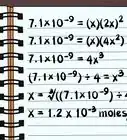 7.1×10⁻⁹ = (x)(2x)²
7.1×10⁻⁹ = (x)(4x²)
7.1×10⁻⁹ = 4x³
(7.1×10⁻⁹) ÷ 4 = x³
x = ³√((7.1×10⁻⁹) ÷
x = 1.2 x 10⁻³ moles